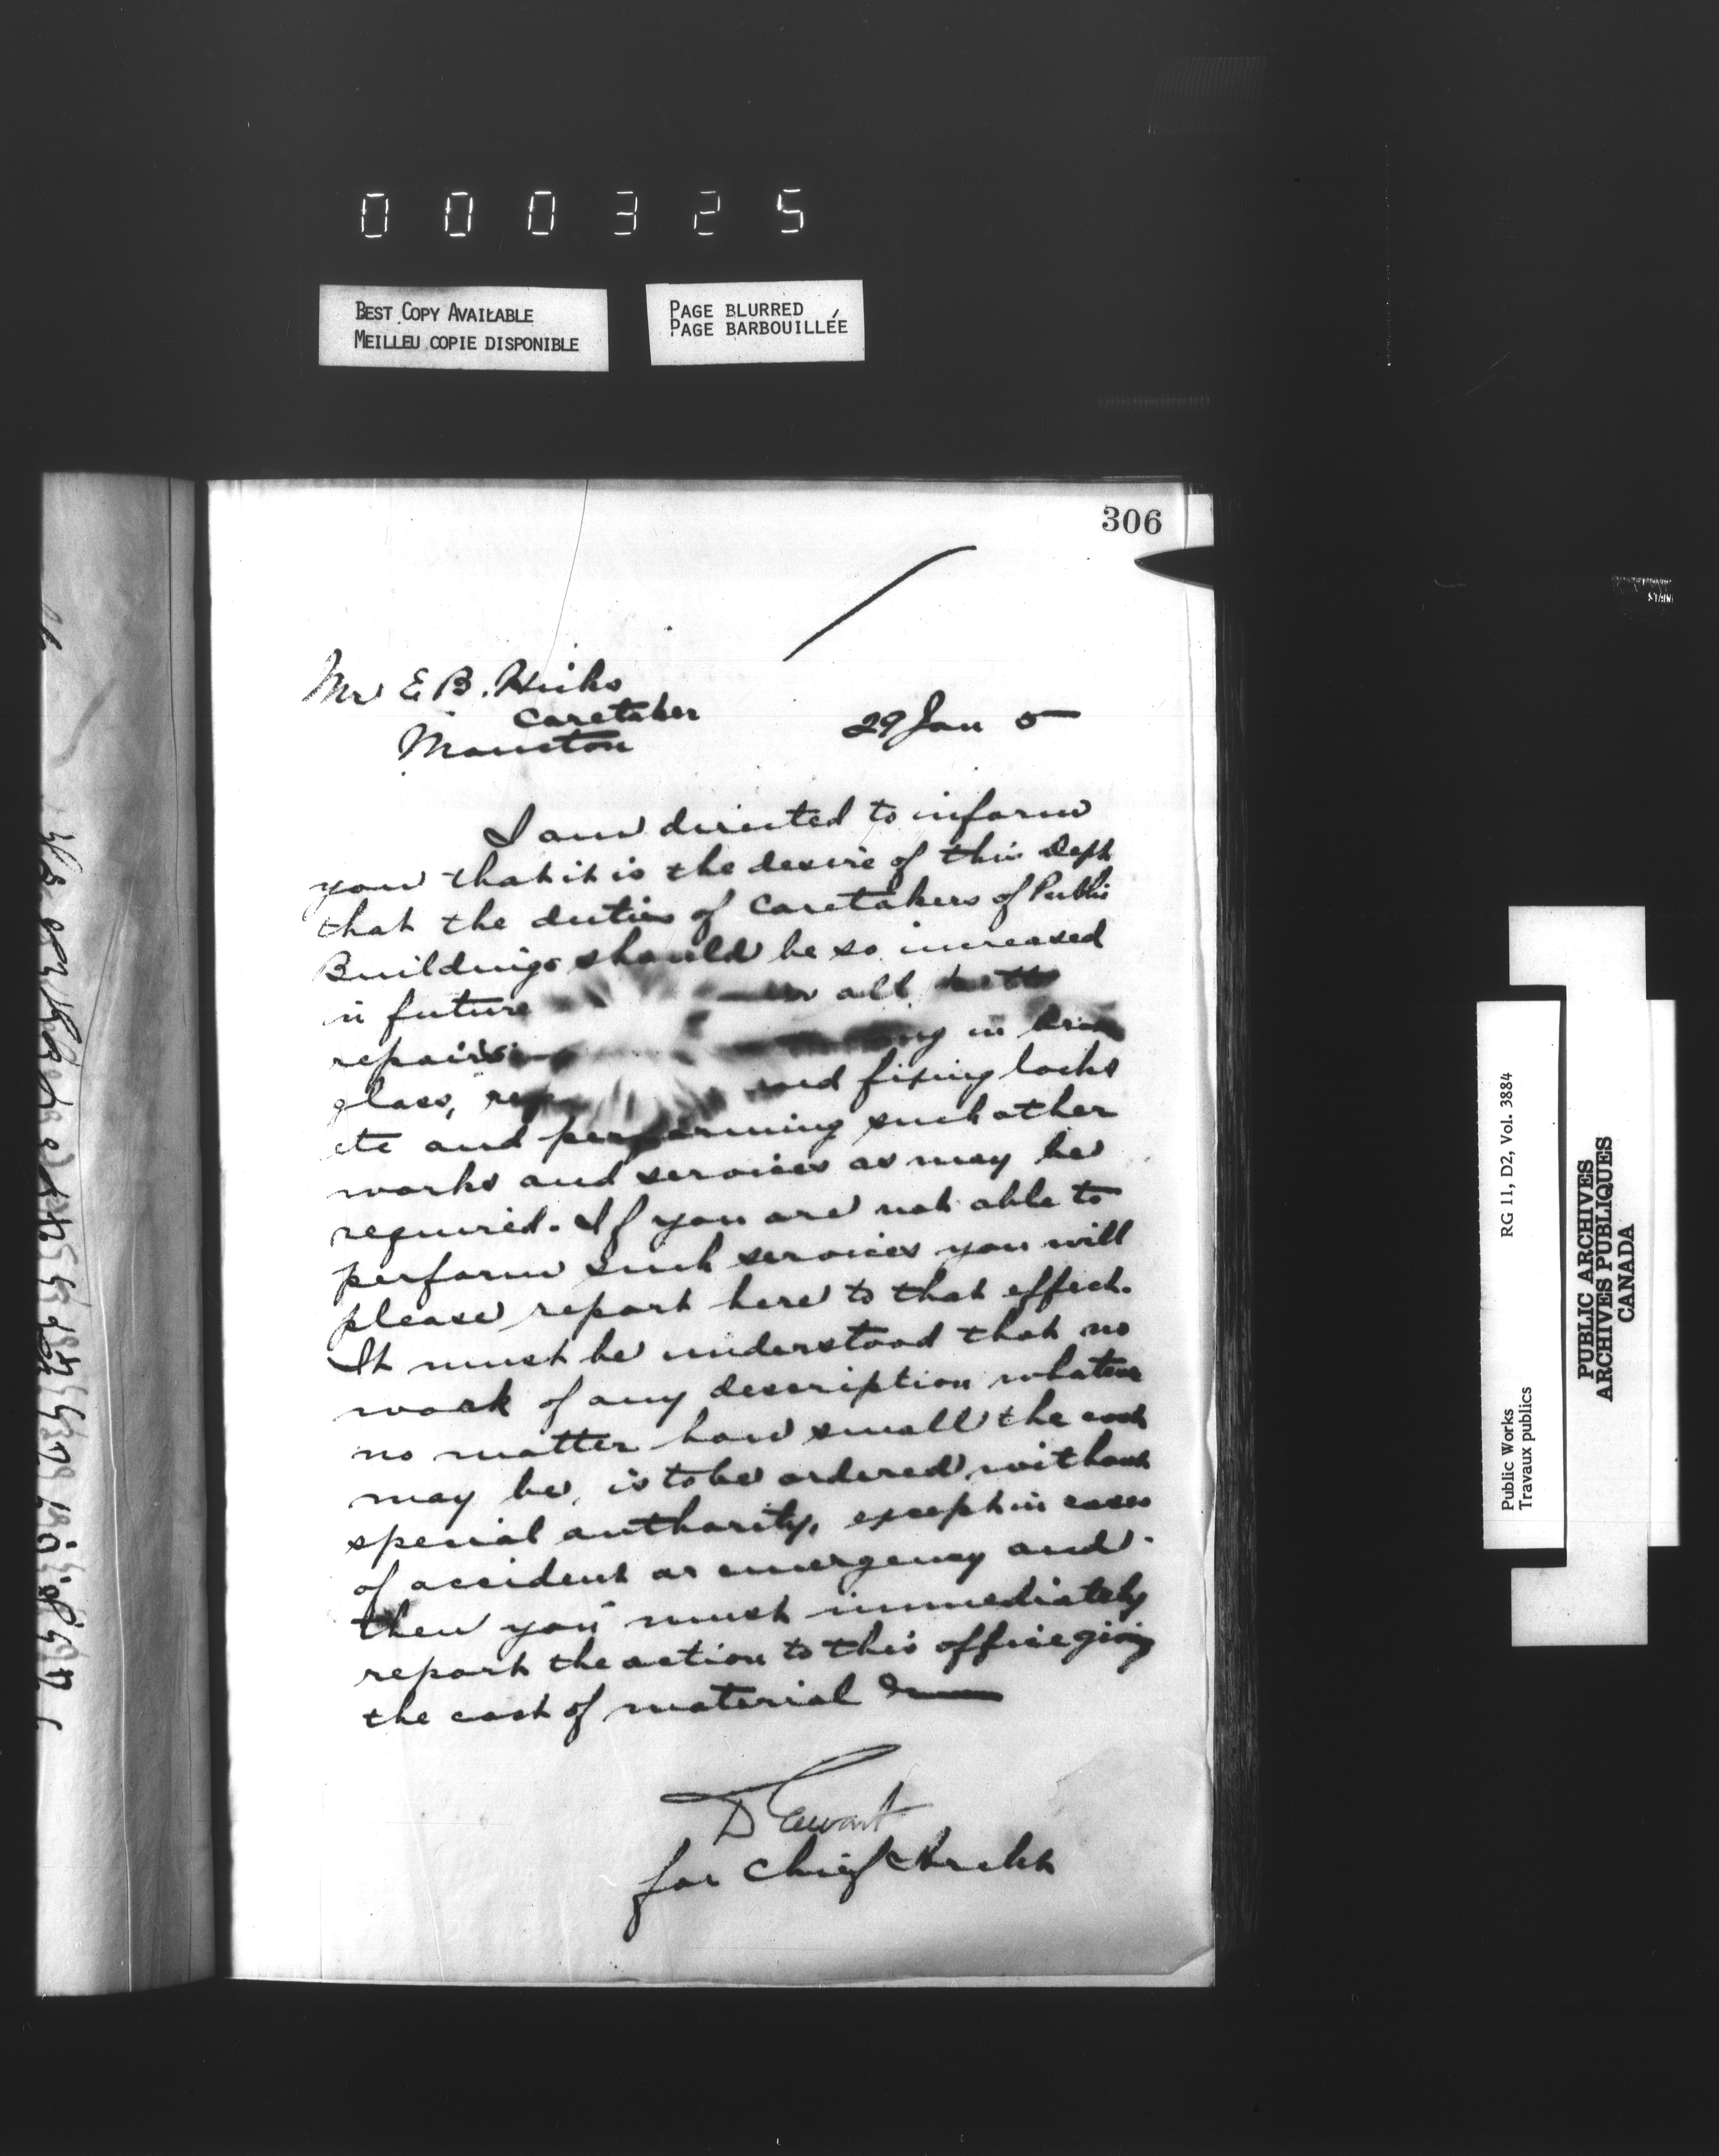 000325
BEST COPY AVAILABLE
MEILLEU COPIE DISPONIBLE
PAGE BLURRED
PAGE BARBOUILLÉE
306
Mr E B. Hicks
Caretaker
Moncton
29 Jan 5
I am directed to inform
you that it is the desire of this Dept
that the duties of Caretakers of Public
Buildings should be so increased
in future all
repairs in
glass, and fixing locks
etc and performing such other
works and services as may be
required. If you are not able to
perform such services you will
please report here to that effect.
It must be understood that no
work of any description whatever
no matter how small the cost
may be, is to be ordered without
special authority, except in cases
of accident or emergency and
then you must immediately
report the action to this office giving
the cost of material
D Ewart
for Chief Archt
Public Works
Travaux publics
RG 11, D2, Vol. 3884
PUBLIC ARCHIVES
ARCHIVES PUBLIQUES
CANADA